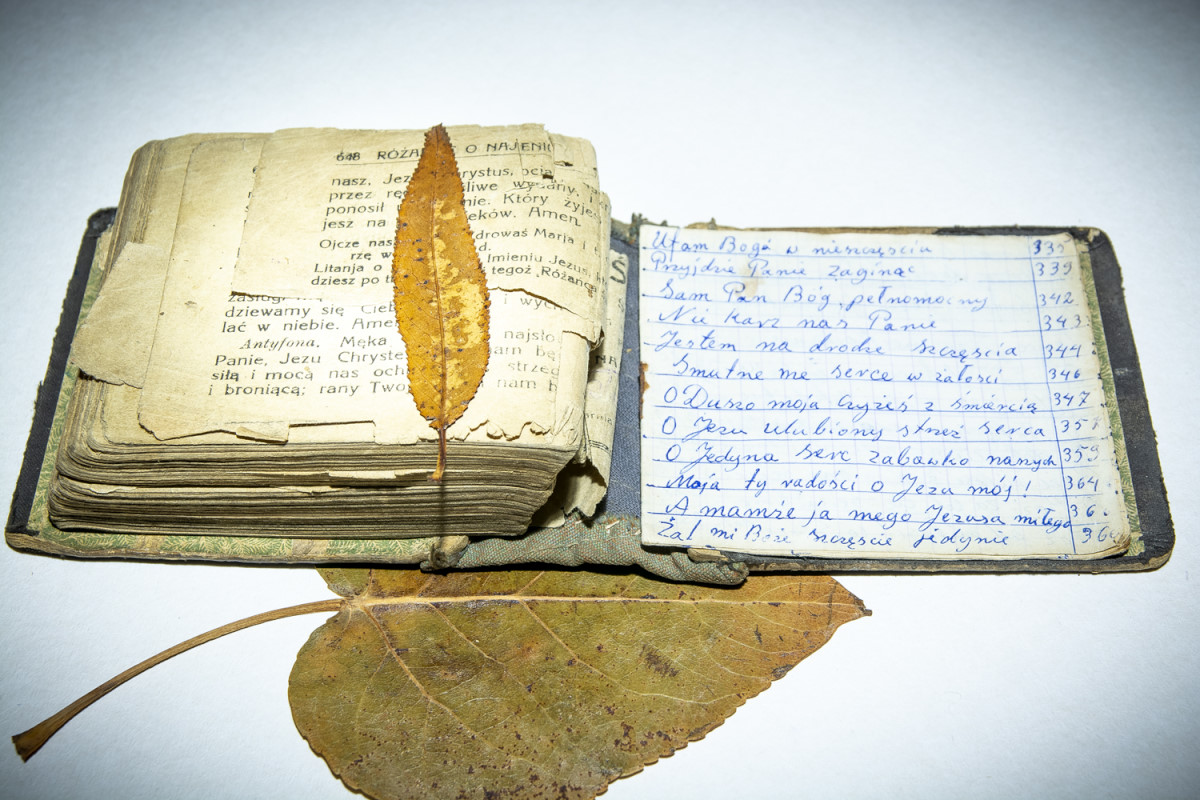 648 RÓŻA O NAJENI
nasz, Jez hrystus,
przez rę śliwe wydany,
ponosił nie. Który żyje
jesz na ieków. Amen.
Ojcze nas drowaś Marja i
rzę w d.
Litanja o Imieniu Jezus
dziesz po t tegoż Różańca
zasług
dziewamy się Cieb i wy
lać w niebie. Ame najsło
Antyfona. Męka am bę
Panie, Jezu Chryste strzeg
siłą i mocą nas och nam b
i broniącą; rany Two
Ufam Bogó w nieszczęściu 335
Przyjdzie Panie zaginąć 339
Sam Pan Bóg pełnomocny 342
Nie karz nas Panie 343
Jestem na drodze szczęścia 344
Smutne me serce w żałości 346
O Duszo moja czyżeś z śmiercią 347
O Jezu ulubiony strzeż serca 351
O Jedyna serc zabawko naszych 359
Moja ty radości o Jezu mój! 364
A mamże ja mego Jezusa miłego 36
Żal mi Boże szczęście jedynie 36